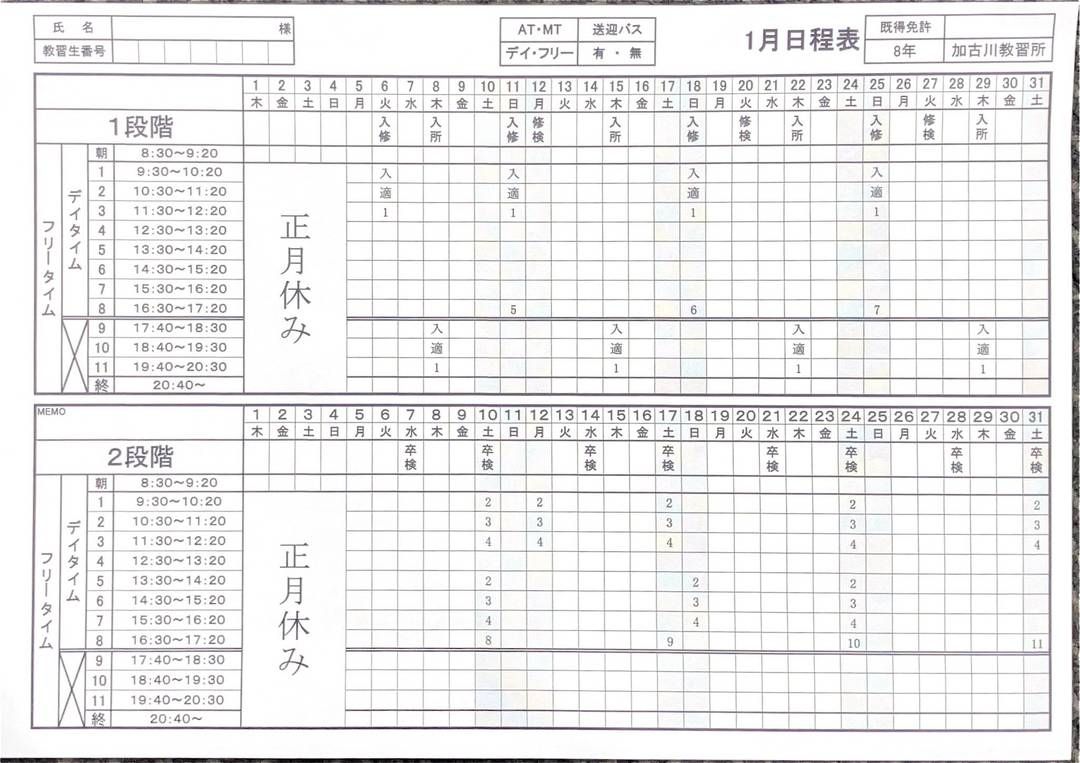 氏 名 様
教習生番号
AT・MT 送迎バス
デイ・フリー 有 ・ 無
1月日程表
既得免許
8年 加古川教習所
1 2 3 4 5 6 7 8 9 10 11 12 13 14 15 16 17 18 19 20 21 22 23 24 25 26 27 28 29 30 31
木 金 土 日 月 火 水 木 金 土 日 月 火 水 木 金 土 日 月 火 水 木 金 土 日 月 火 水 木 金 土
1段階 入修 入所 入修 修検 入所 入修 修検 入所 入修 修検 入所
フリータイム
デイタイム
正月休み
朝 8:30～9:20
1 9:30～10:20 入 入 入 入
2 10:30～11:20 適 適 適 適
3 11:30～12:20 1 1 1 1
4 12:30～13:20
5 13:30～14:20
6 14:30～15:20
7 15:30～16:20
8 16:30～17:20 5 6 7
9 17:40～18:30 入 入 入 入
10 18:40～19:30 適 適 適 適
11 19:40～20:30 1 1 1 1
終 20:40～
MEMO
1 2 3 4 5 6 7 8 9 10 11 12 13 14 15 16 17 18 19 20 21 22 23 24 25 26 27 28 29 30 31
木 金 土 日 月 火 水 木 金 土 日 月 火 水 木 金 土 日 月 火 水 木 金 土 日 月 火 水 木 金 土
2段階 卒検 卒検 卒検 卒検 卒検 卒検 卒検 卒検
フリータイム
デイタイム
正月休み
朝 8:30～9:20
1 9:30～10:20 2 2 2 2 2
2 10:30～11:20 3 3 3 3 3
3 11:30～12:20 4 4 4 4 4
4 12:30～13:20
5 13:30～14:20 2 2 2
6 14:30～15:20 3 3 3
7 15:30～16:20 4 4 4
8 16:30～17:20 8 9 10 11
9 17:40～18:30
10 18:40～19:30
11 19:40～20:30
終 20:40～